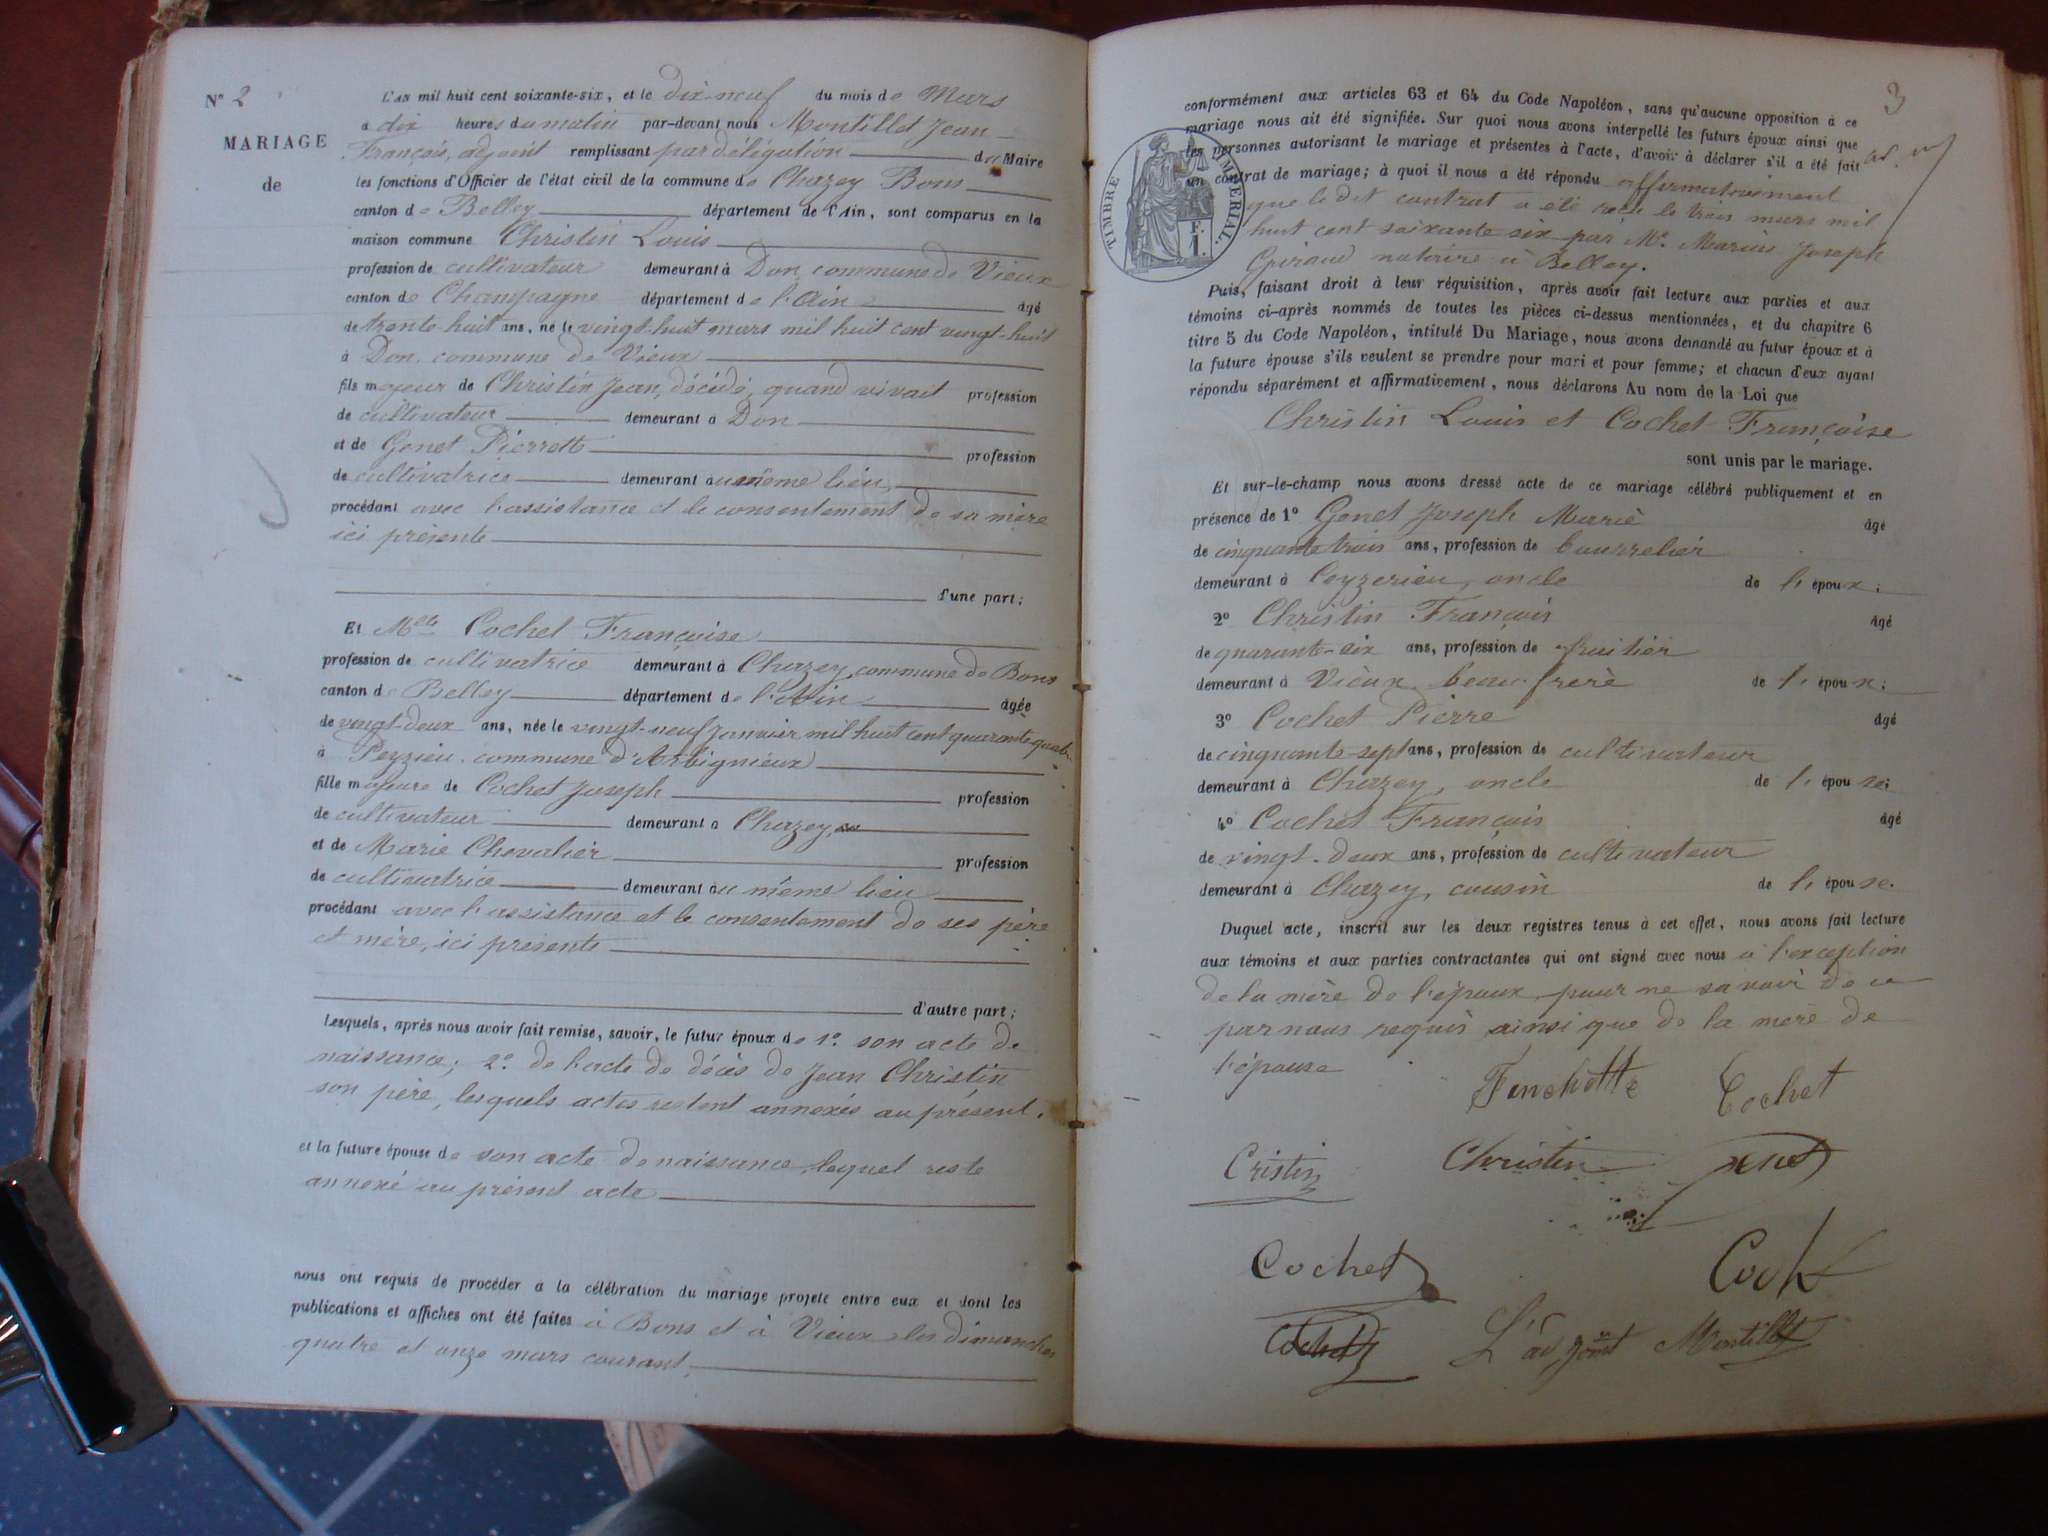 N° 2
MARIAGE
de
L'an mil huit cent soixante-six, et le dix-neuf du mois de Mars
à dix heures du matin par-devant nous Montillet Jean
François, adjoint remplissant par délégation du Maire
les fonctions d'Officier de l'état civil de la commune de Chazey Bons
canton de Belley département de l'Ain, sont comparus en la
maison commune Christin Louis
profession de cultivateur demeurant à Don, commune de Vieux
canton de Champagne département de l'Ain âgé
de trente-huit ans, né le vingt-huit mars mil huit cent vingt-huit
à Don, commune de Vieux
fils majeur de Christin Jean, décédé, quand vivait profession
de cultivateur demeurant à Don
et de Genet Pierrette profession
de cultivatrice demeurant au même lieu
procédant avec l'assistance et le consentement de sa mère
ici présente
d'une part;
Et Melle Cochet Françoise
profession de cultivatrice demeurant à Chazey, commune de Bons
canton de Belley département de l'Ain âgée
de vingt-deux ans, née le vingt-neuf janvier mil huit cent quarante quatre
à Peyzieu, commune d'Arbignieux
fille majeure de Cochet Joseph profession
de cultivateur demeurant à Chazey
et de Marie Chevalier profession
de cultivatrice demeurant au même lieu
procédant avec l'assistance et le consentement de ses père
et mère, ici présents
d'autre part;
Lesquels, après nous avoir fait remise, savoir, le futur époux de 1° son acte de
naissance; 2° de l'acte de décès de Jean Christin
son père, lesquels actes restent annexés au présent.
et la future épouse de son acte de naissance lequel reste
annexé au présent acte
nous ont requis de procéder à la célébration du mariage projeté entre eux et dont les
publications et affiches ont été faites à Bons et à Vieux les dimanches
quatre et onze mars courant
3
conformément aux articles 63 et 64 du Code Napoléon, sans qu'aucune opposition à ce
mariage nous ait été signifiée. Sur quoi nous avons interpellé les futurs époux ainsi que
les personnes autorisant le mariage et présentes à l'acte, d'avoir à déclarer s'il a été fait
un contrat de mariage; à quoi il nous a été répondu affirmativement
que le dit contrat a été reçu le trois mars mil
huit cent soixante six par Me Marius Joseph
Guiraud notaire à Belley.
TIMBRE IMPÉRIAL.
F.
1.
Puis, faisant droit à leur réquisition, après avoir fait lecture aux parties et aux
témoins ci-après nommés de toutes les pièces ci-dessus mentionnées, et du chapitre 6
titre 5 du Code Napoléon, intitulé Du Mariage, nous avons demandé au futur époux et à
la future épouse s'ils veulent se prendre pour mari et pour femme; et chacun d'eux ayant
répondu séparément et affirmativement, nous déclarons Au nom de la Loi que
Christin Louis et Cochet Françoise
sont unis par le mariage.
Et sur-le-champ nous avons dressé acte de ce mariage célébré publiquement et en
présence de 1° Genet Joseph Marie âgé
de cinquante trois ans, profession de bourrelier
demeurant à Ceyzerieu, oncle de l'époux;
2° Christin François âgé
de quarante-six ans, profession de fruitier
demeurant à Vieux beau-frère de l'époux;
3° Cochet Pierre âgé
de cinquante-sept ans, profession de cultivateur
demeurant à Chazey, oncle de l'épouse;
4° Cochet François âgé
de vingt-deux ans, profession de cultivateur
demeurant à Chazey, cousin de l'épouse.
Duquel acte, inscrit sur les deux registres tenus à cet effet, nous avons fait lecture
aux témoins et aux parties contractantes qui ont signé avec nous à l'exception
de la mère de l'époux pour ne savoir de ce
par nous requis ainsi que de la mère de
l'épouse
Cochet
Cristin Christin
Cochet
Cochet L'adjoint Montillet